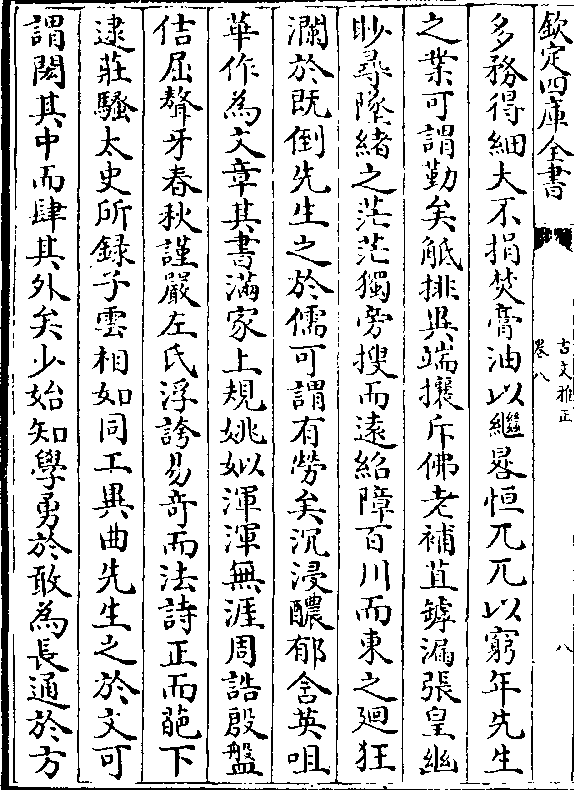 欽定四庫全書
古文雅正
卷八
八
多務得細大不捐焚膏油以繼晷恒兀兀以窮年先生
之業可謂勤矣觝排異端攘斥佛老補苴罅漏張皇幽
眇尋墜緒之茫茫獨旁搜而遠紹障百川而東之廻狂
瀾於既倒先生之於儒可謂有勞矣沉浸醲郁含英咀
華作為文章其書滿家上規姚姒渾渾無涯周誥殷盤
佶屈聱牙春秋謹嚴左氏浮誇易奇而法詩正而葩下
逮莊騷太史所録子雲相如同工異曲先生之於文可
謂閎其中而肆其外矣少始知學勇於敢為長通於方